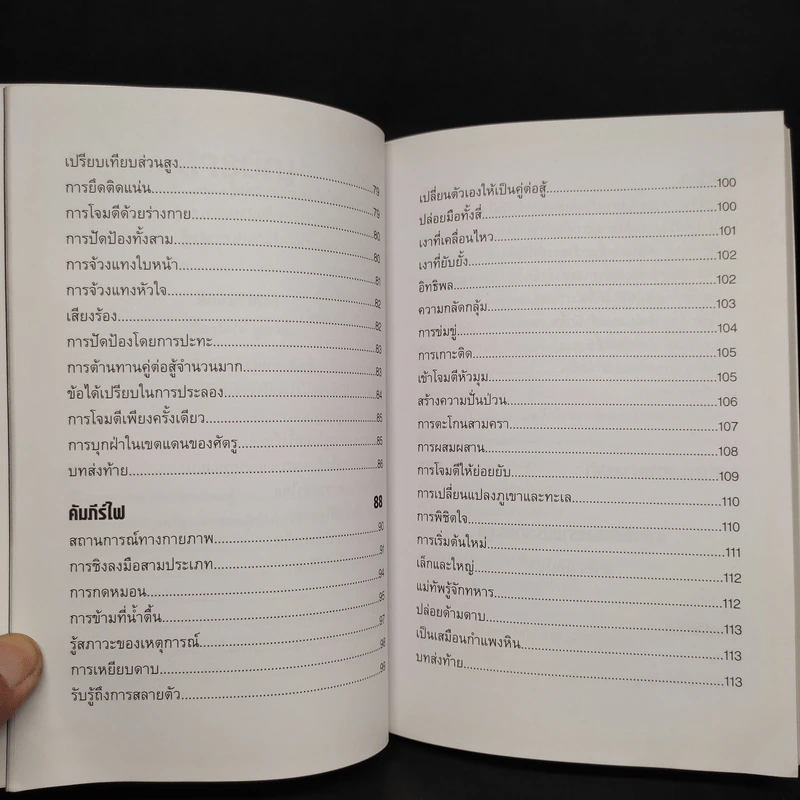 เปรียบเทียบส่วนสูง........................79
การยึดติดแน่น........................79
การโจมตีด้วยร่างกาย........................80
การปัดป้องทั้งสาม........................80
การจ้วงแทงใบหน้า........................81
การจ้วงแทงหัวใจ........................82
เสียงร้อง........................82
การปัดป้องโดยการปะทะ........................83
การต้านทานคู่ต่อสู้จำนวนมาก........................83
ข้อได้เปรียบในการประลอง........................84
การโจมตีเพียงครั้งเดียว........................85
การบุกฝ่าในเขตแดนของศัตรู........................85
บทส่งท้าย........................86
คัมภีร์ไฟ 88
สถานการณ์ทางกายภาพ........................90
การชิงลงมือสามประเภท........................91
การกดหมอน........................94
การข้ามที่น้ำตื้น........................95
รู้สภาวะของเหตุการณ์........................97
การเหยียบดาบ........................98
รับรู้ถึงการสลายตัว........................98
เปลี่ยนตัวเองให้เป็นคู่ต่อสู้........................100
ปล่อยมือทั้งสี่........................100
เงาที่เคลื่อนไหว........................101
เงาที่ยับยั้ง........................102
อิทธิพล........................102
ความกลัดกลุ้ม........................103
การข่มขู่........................104
การเกาะติด........................105
เข้าโจมตีหัวมุม........................105
สร้างความปั่นป่วน........................106
การตะโกนสามครา........................107
การผสมผสาน........................108
การโจมตีให้ย่อยยับ........................109
การเปลี่ยนแปลงภูเขาและทะเล........................110
การพิชิตใจ........................110
การเริ่มต้นใหม่........................111
เล็กและใหญ่........................112
แม่ทัพรู้จักทหาร........................112
ปล่อยด้ามดาบ........................113
เป็นเสมือนกำแพงหิน........................113
บทส่งท้าย........................113